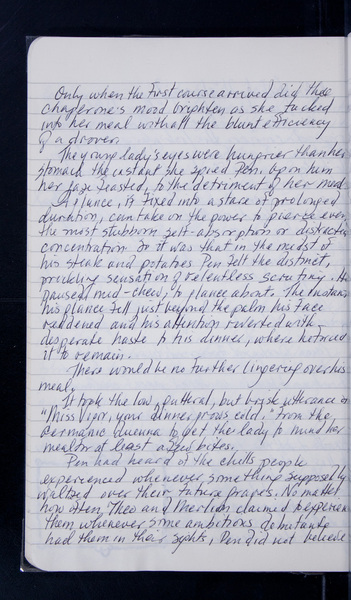 Only when the first course arrived did the
chaperone's mood brighten as she tucked
into her meal with all the blunt efficiency
of a drover.
The young lady's eyes were hungrier than her
stomach the instant she spied Pen. Upon him
her gaze feasted, to the detriment of her meal.
A glance, if fixed into a stare of prolonged
duration, can take on the power to pierce even
the most stubborn self-absorption or distracted
concentration. So it was that in the midst of
his steak and potatoes Pen felt the distinct,
prickling sensation of relentless scrutiny. He
paused mid-chew, to glance about. The instant
his glance fell just beyond the palm his face
reddened and his attention reverted with
desperate haste to his dinner, where he
it to remain.
There would be no further lingering over his
meal.
It took the low, guttural, but brisk utterance of
"Miss Vigor, your dinner grows cold." from the
Germanic duenna to get the lady to mind her
meal for at least a few bites.
Pen had heard of the chills people
experienced whenever something supposedly
waltzed over their future graves. No matter
how often Theo and claimed
them, whenever some ambitious debutante
had them in their sights, Pen did not believe